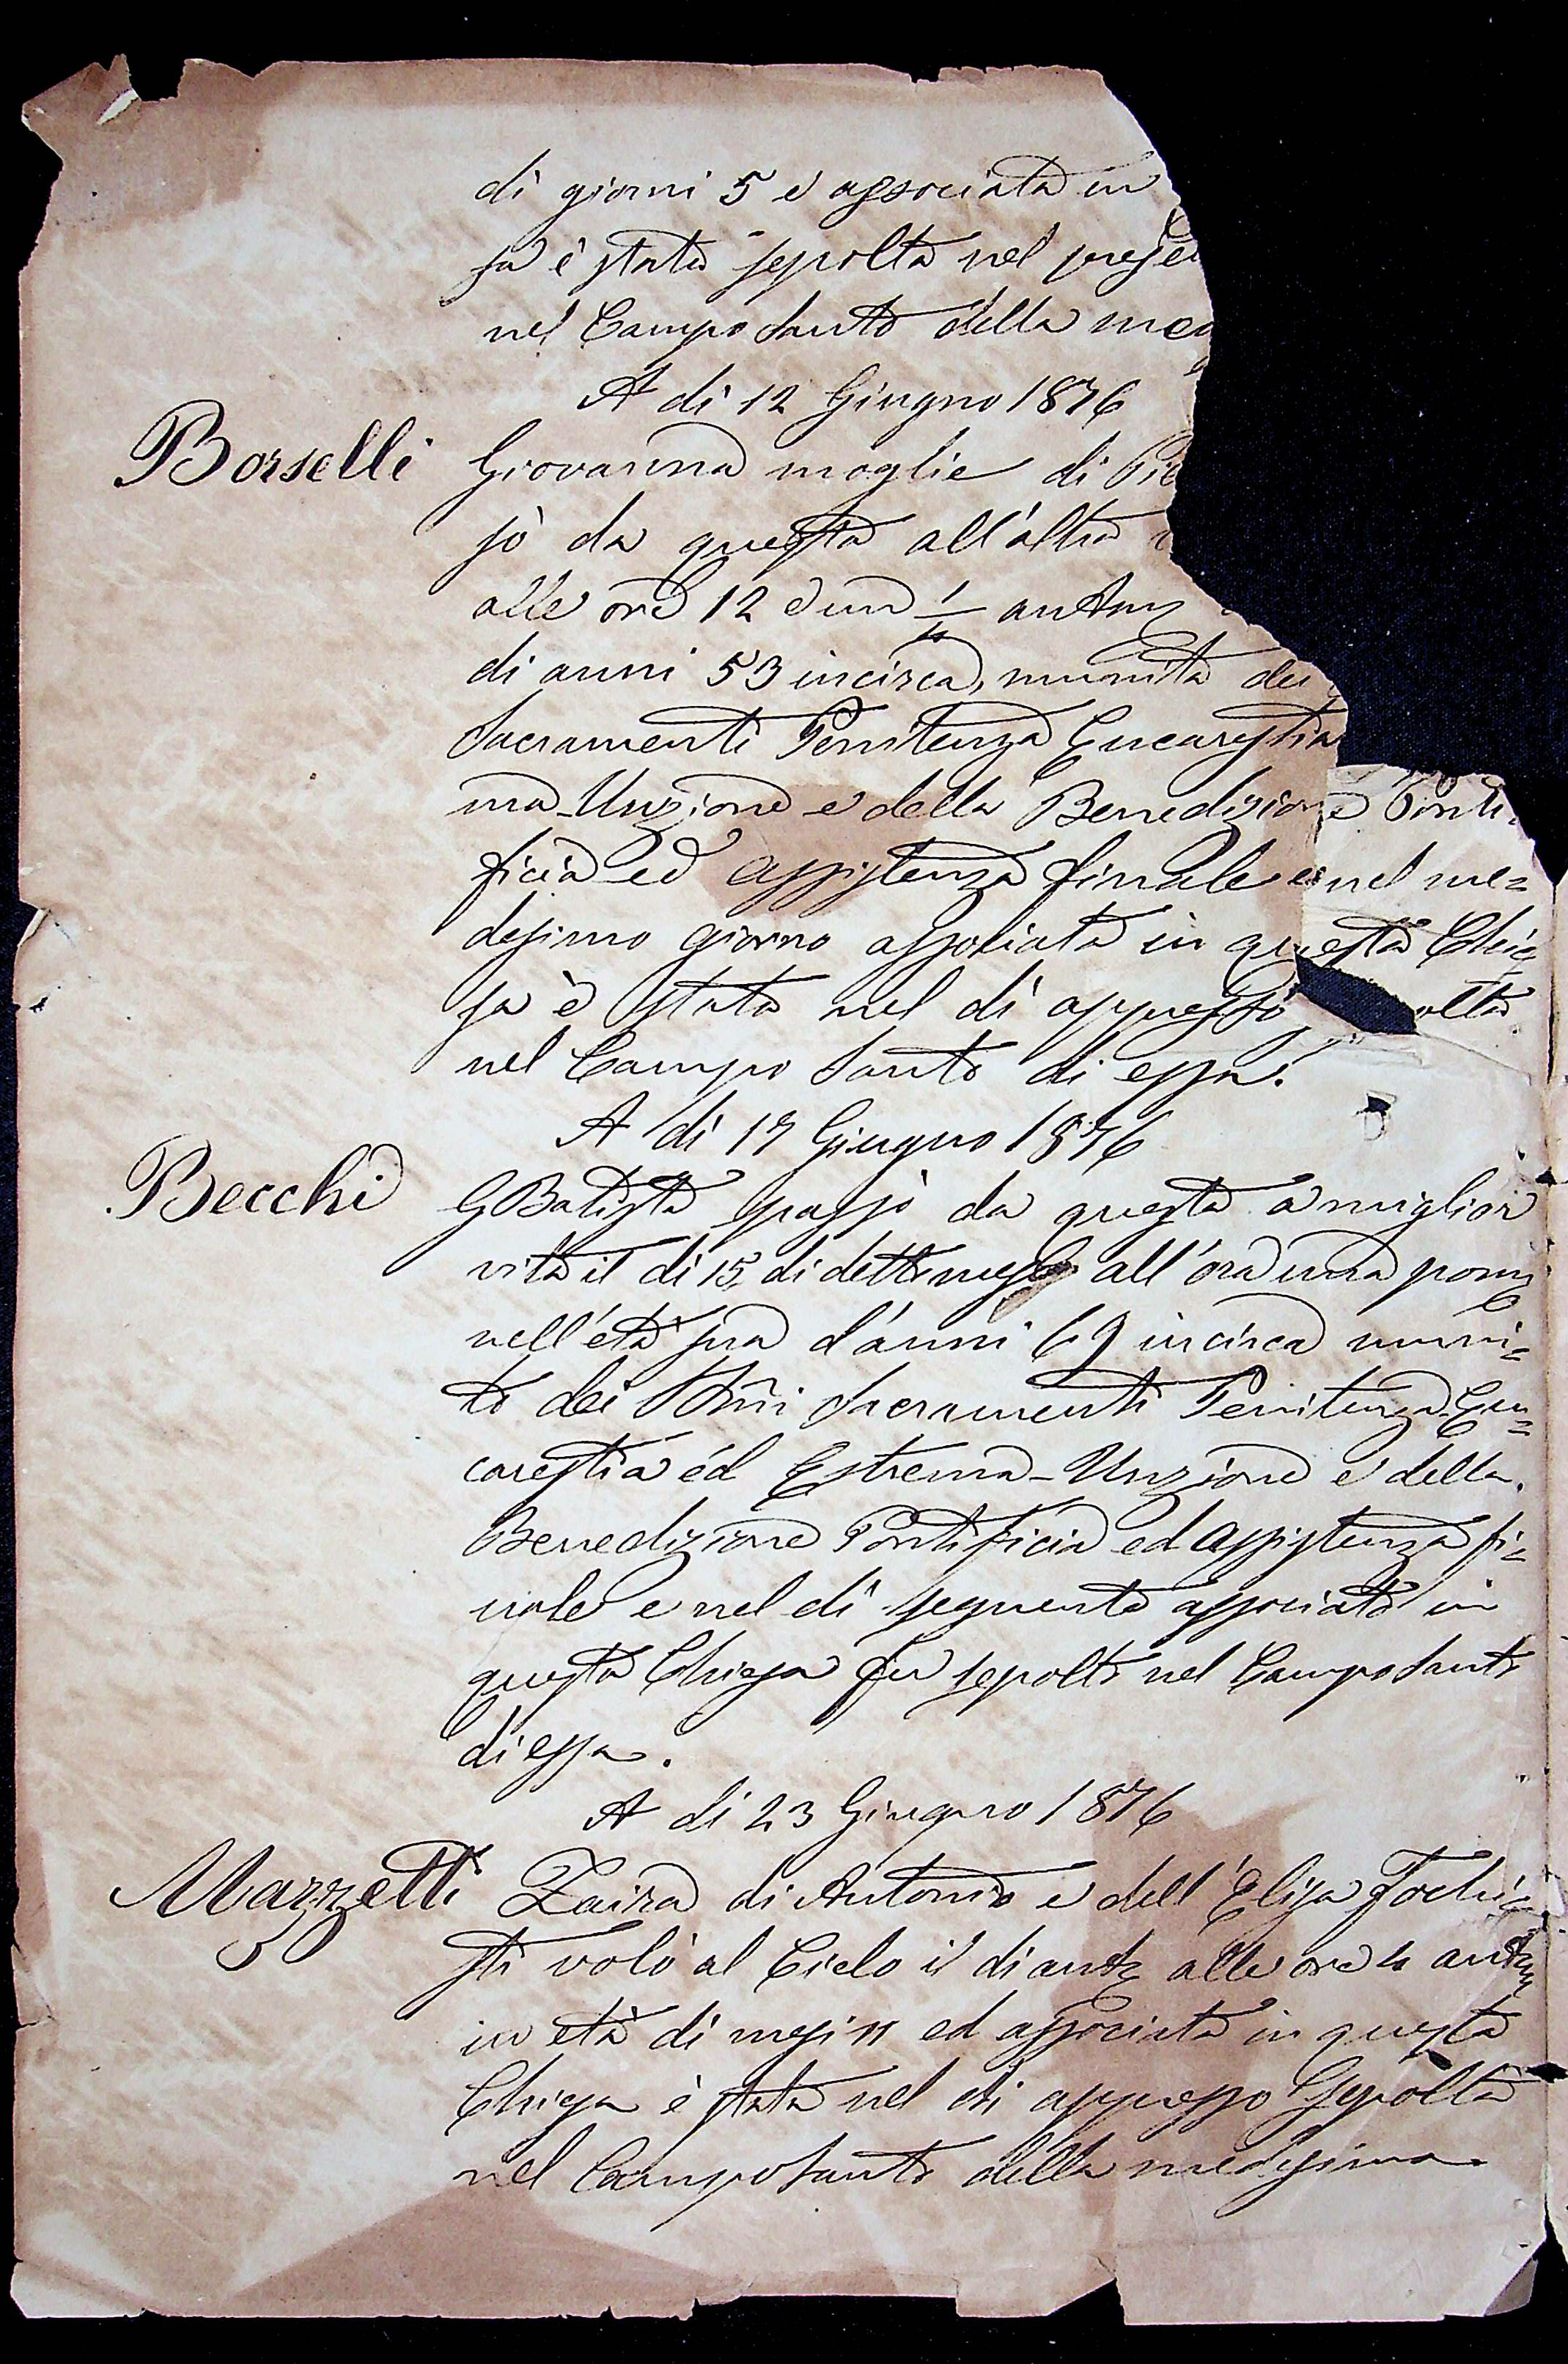 di giorni 5 e associata in
sa è stata sepolta nel prese
nel Campo Santo della me
A di 12 Giugno 1876
Borselli Giovanna moglie di Pie
sò da questa all'altra
alle ore 12 e un 1/4 antmz
di anni 53 incirca, munita dei
Sacramenti Penitenza Eucarestia
ma-Unzione e della Benedizione Ponti-
ficia ed assistenza finale e nel me=
desimo giorno associata in questa Chie=
sa è stata nel di appresso olta
nel Campo Santo di essa.
A di 17 Giugno 1876
Becchi GBatista passò da questa a miglior
vita il di 15 di detto mese all'ora una pomz
nell'età sua d'anni 69 incirca muni=
to dei SSmi Sacramenti Penitenza, Eu=
carestia ed Estrema-Unzione e della
Benedizione Pontificia ed assistenza fi=
nale e nel di seguente associato in
questa Chiesa fu sepolto nel Camposanto
di essa.
A di 23 Giugno 1876
Mazzetti Zaira di Antonio e dell'Elisa Fochi=
sti volò al Cielo il di antz alle ore 4 antmz
in età di mesi 11 ed associata in questa
Chiesa è stata nel di appresso Sepolta
nel Camposanto della medesima.